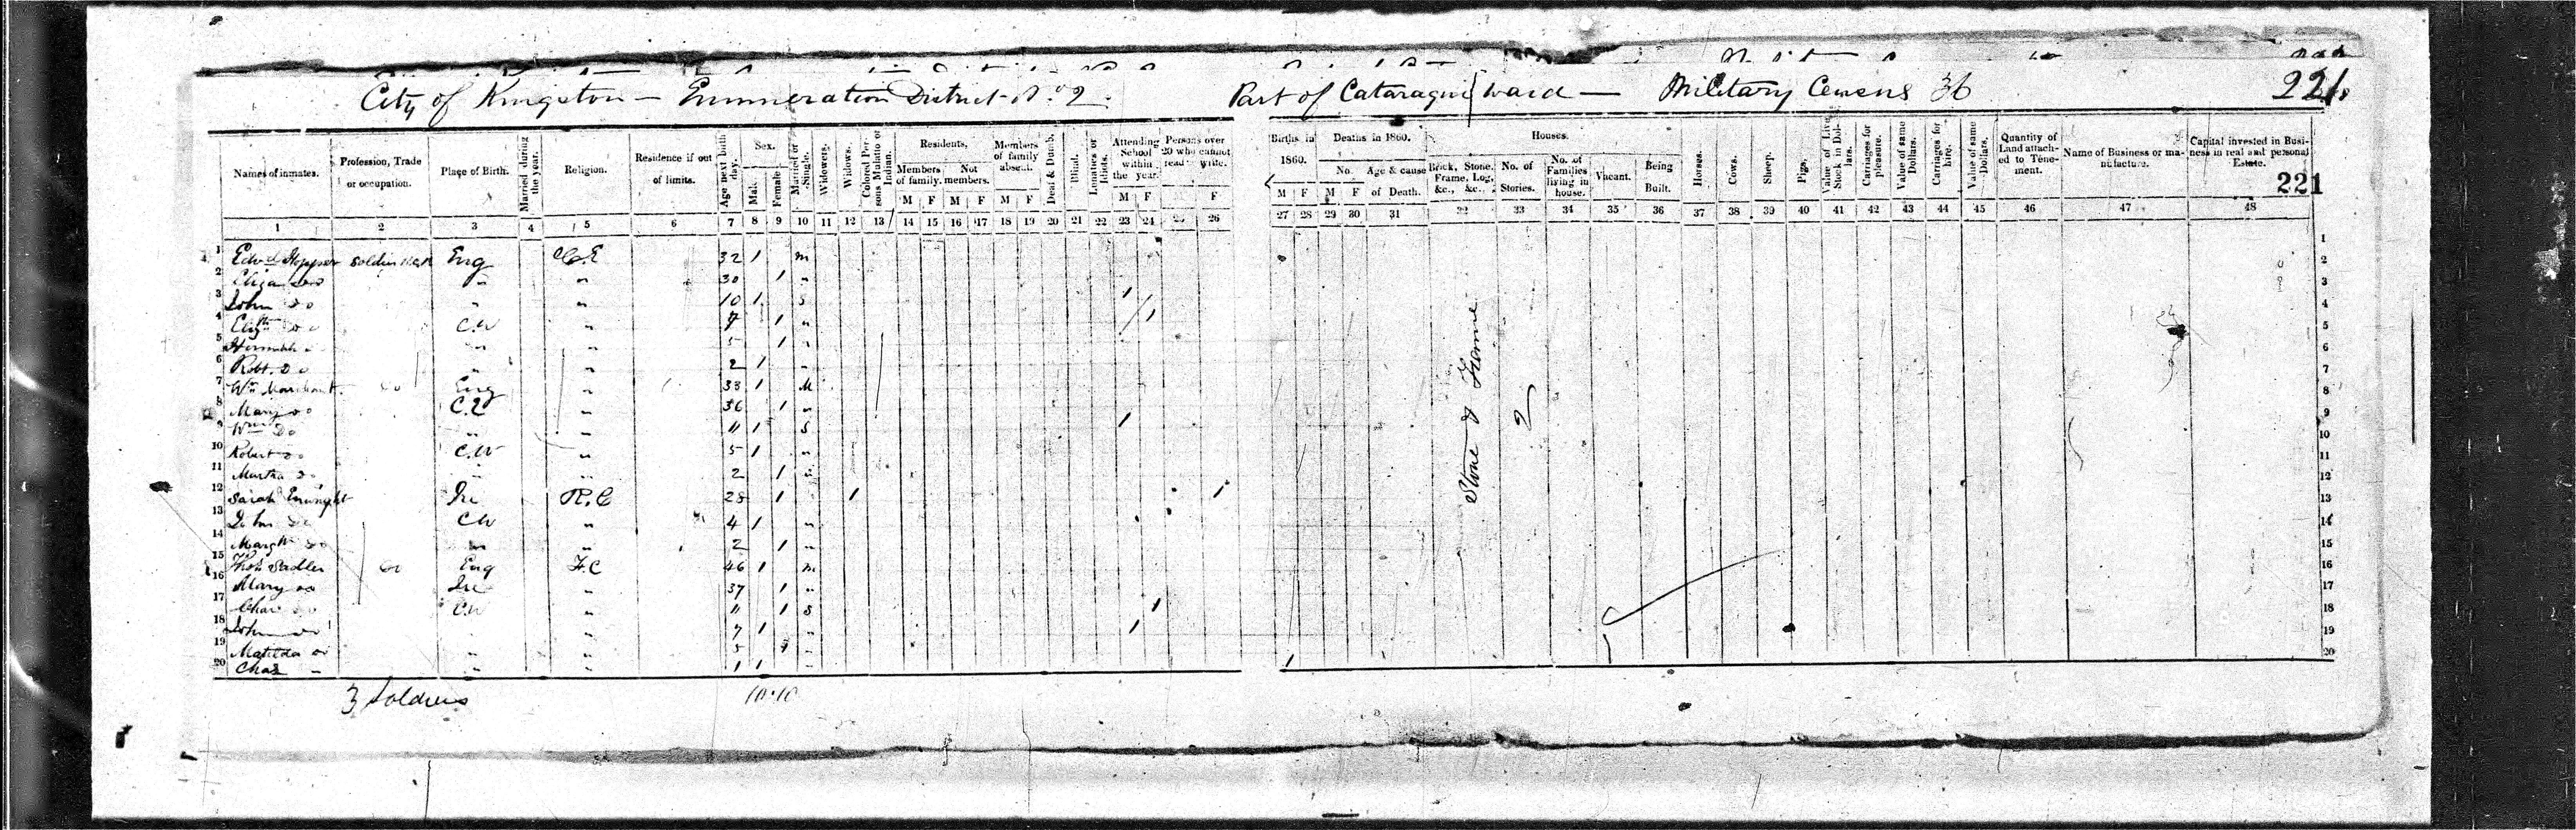 City of Kingston — Enumeration District No. 2. Part of Cataraqui Ward — Military Census 36 221
Names of inmates. Profession, Trade or occupation. Place of Birth. Married during the year. Religion. Residence if out of limits. Age next birth day. Sex. Male Female Married or Single. Widowers. Widows. Colored Persons Mulatto or Indian. Residents. Members of family. Not members. Members of family absent. Deaf & Dumb. Blind. Lunatics or Idiots. Attending School within the year. Persons over 20 who cannot read write. Births in 1860. Deaths in 1860. No. Age & cause of Death. Houses. Brick, Stone, Frame, Log, &c., &c. No. of Stories. No. of Families living in house. Vacant. Being Built. Horses. Cows. Sheep. Pigs. Value of Live Stock in Dollars. Carriages for pleasure. Value of same Dollars. Carriages for hire. Value of same Dollars. Quantity of Land attached to Tenement. Name of Business or manufacture. Capital invested in Business in real and personal Estate.
221
M F M F M F M F F M F M F
1 2 3 4 5 6 7 8 9 10 11 12 13 14 15 16 17 18 19 20 21 22 23 24 25 26 27 28 29 30 31 32 33 34 35 36 37 38 39 40 41 42 43 44 45 46 47 48
1 Edwd Hopper Soldier Eng C.E 32 1 m 1
2 Eliza Do " " 30 1 " 2
3 John Do " " 10 1 s 1 3
4 Elizth Do C.W " 7 1 " 1 4
5 " " 5 1 " 5
6 Robt. Do " " 2 1 " 6
7 Wm Marchant Do Eng " 33 1 M 7
8 Mary Do C.E " 36 1 " 8
9 Wm Do " " 11 1 S 1 9
10 Robert Do C.W " 5 1 " 10
11 Martha Do " " 2 1 " 11
12 Sarah Enright Ire R.C 28 1 1 1 12
13 John Do CW " 4 1 " 13
14 Margt Do " " 2 1 " 14
15 Thos Sadler Do Eng F.C 46 1 m 15
16 Mary Do Ire " 37 1 " 16
17 Do C.W " 11 1 S 1 17
18 John Do " " 7 1 " 1 18
19 Matilda Do " " 5 1 " 19
20 Chas " " " 1 1 " 1 20
Stone & Frame
2
3 Soldiers 10·10